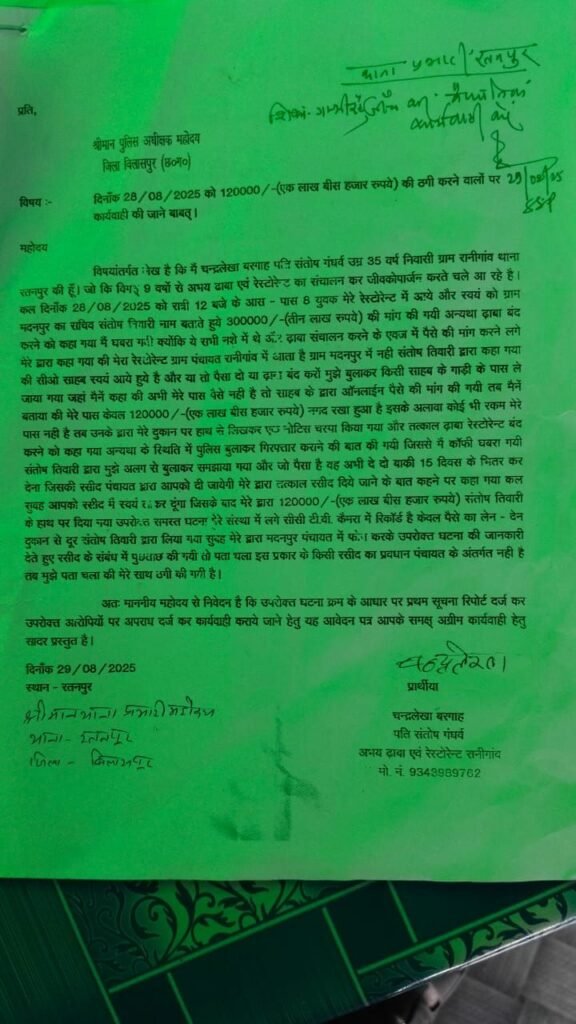 थाना प्रभारी रतनपुर
कार्यवाही करें
29/08/25
SSP
प्रति,
श्रीमान पुलिस अधीक्षक महोदय
जिला बिलासपुर (छ०ग०)
विषय :- दिनाँक 28/08/2025 को 120000/-(एक लाख बीस हजार रूपये) की ठगी करने वालों पर
कार्यवाही की जाने बाबत्।
महोदय
विषयांतर्गत लेख है कि मैं चन्द्रलेखा बरगाह पति संतोष गंधर्व उम्र 35 वर्ष निवासी ग्राम रानीगांव थाना
रतनपुर की हूँ। जो कि विगत् 9 वर्षो से अभय ढाबा एवं रेस्टोरेन्ट का संचालन कर जीवकोपार्जन करते चले आ रहे है।
कल दिनाँक 28/08/2025 को रात्री 12 बजे के आस - पास 8 युवक मेरे रेस्टोरेन्ट में आये और स्वयं को ग्राम
मदनपुर का सचिव संतोष तिवारी नाम बताते हुये 300000/-(तीन लाख रूपये) की मांग की गयी अन्यथा ढ़ाबा बंद
करने को कहा गया मैं घबरा गयी क्योंकि ये सभी नशे में थे और ढ़ाबा संचालन करने के एवज में पैसे की मांग करने लगे
मेरे द्वारा कहा गया की मेरा रेस्टोरेन्ट ग्राम पंचायत रानीगांव में आता है ग्राम मदनपुर में नही संतोष तिवारी द्वारा कहा गया
की सीओ साहब स्वयं आये हुये है और या तो पैसा दो या ढ़ाबा बंद करों मुझे बुलाकर किसी साहब के गाड़ी के पास ले
जाया गया जहां मैनें कहा की अभी मेरे पास पैसे नही है तो साहब के द्वारा ऑनलाईन पैसे की मांग की गयी तब मैनें
बताया की मेरे पास केवल 120000/-(एक लाख बीस हजार रूपये) नगद रखा हुआ है इसके अलावा कोई भी रकम मेरे
पास नही है तब उनके द्वारा मेरे दुकान पर हाथ से लिखकर एक नोटिस चस्पा किया गया और तत्काल ढ़ाबा रेस्टोरेन्ट बंद
करने को कहा गया अन्यथा के स्थिति में पुलिस बुलाकर गिरफ्तार कराने की बात की गयी जिससे में कॉफी घबरा गयी
संतोष तिवारी द्वारा मुझे अलग से बुलाकर समझाया गया और जो पैसा है वह अभी दे दो बाकी 15 दिवस के भितर कर
देना जिसकी रसीद पंचायत द्वारा आपको दी जायेगी मेरे द्वारा तत्काल रसीद दिये जाने के बात कहने पर कहा गया कल
सुबह आपको रसीद में स्वयं लाकर दूंगा जिसके बाद मेरे द्वारा 120000/-(एक लाख बीस हजार रूपये) संतोष तिवारी
के हाथ पर दिया गया उपरोक्त समस्त घटना मेरे संस्था में लगे सीसी टी.वी. कैमरा में रिकॉर्ड है केवल पैसे का लेन - देन
दुकान से दूर संतोष तिवारी द्वारा लिया गया सुबह मेरे द्वारा मदनपुर पंचायत में फोन करके उपरोक्त घटना की जानकारी
देते हुए रसीद के संबंध में पुछताछ की गयी तो पता चला इस प्रकार के किसी रसीद का प्रवधान पंचायत के अंतर्गत नही है
तब मुझे पता चला की मेरे साथ ठगी की गई है।
अतः माननीय महोदय से निवेदन है कि उपरोक्त घटना क्रम के आधार पर प्रथम सूचना रिपोर्ट दर्ज कर
उपरोक्त आरोपियों पर अपराध दर्ज कर कार्यवाही कराये जाने हेतु यह आवेदन पत्र आपके समक्ष अग्रीम कार्यवाही हेतु
सादर प्रस्तुत है।
दिनाँक 29/08/2025
स्थान - रतनपुर
श्रीमान थाना प्रभारी महोदय
थाना - रतनपुर
जिला - बिलासपुर
चन्द्रलेखा
प्रार्थीया
चन्द्रलेखा बरगाह
पति संतोष गंधर्व
अभय ढ़ाबा एवं रेस्टोरेन्ट रानीगांव
मो. नं. 9343989762